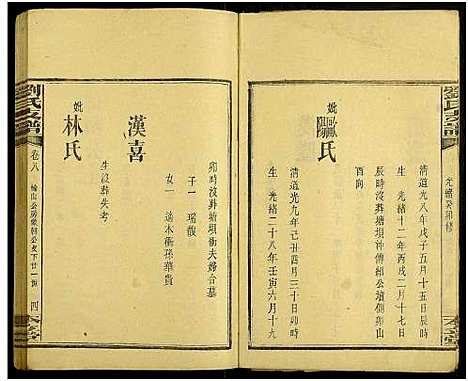 劉氏支譜
光緒癸卯修
清道光八年戊子五月十五日辰時
生 光緒十二年丙戌二月十七日
辰時沒葬塘垻沖傅緒公墳側卯山
酉向
妣歐陽氏
清道光九年己丑四月三十日卯時
生 光緒二十八年壬寅六月十九
卯時沒葬塘垻衝夫婦合墓
子一 瑞馥
女一 適木衝孫華貴
漢喜
生沒葬失考
妣林氏
劉氏支譜
卷八 山公房榮朝公支下廿一派 四